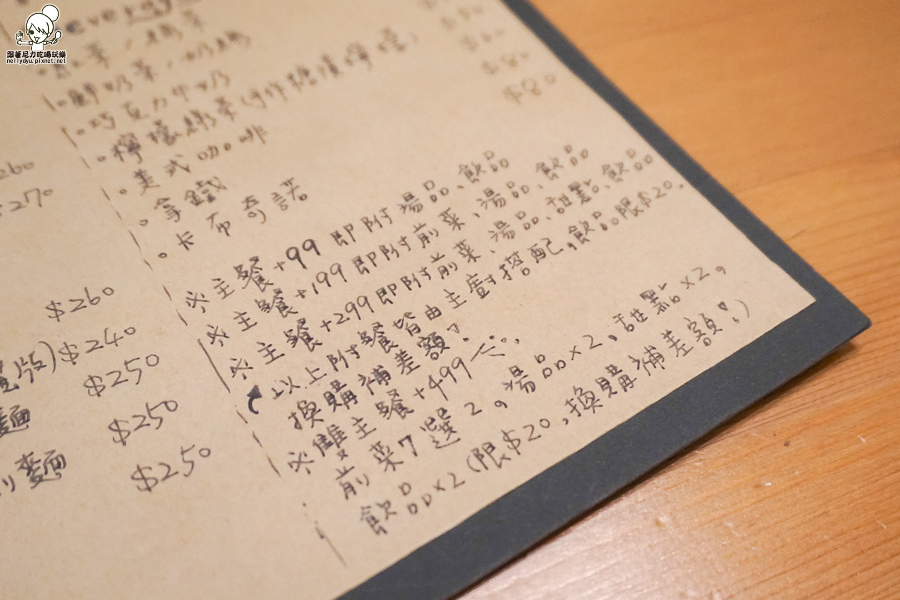 跟著尼力吃喝玩樂
nellydyu.pixnet.net
Beverage
。鮮奶茶/奶綠
。巧克力牛奶
。檸檬綠茶
。美式咖啡
。拿鐵
。卡布奇諾
$80
$80
260
$270
$260
版)$240
$250
麵 $250
麵 $250
※主餐+99即附湯品、飲品
※主餐+199即附前菜、湯品、飲品
※主餐+299即附前菜、湯品、甜點、飲品
以上附餐皆由主廚搭配。飲品限$20。
換購補差額!
※雙主餐+499
前菜7選2。湯品x2。甜點x2。
飲品x2(限$20,換購補差額!)